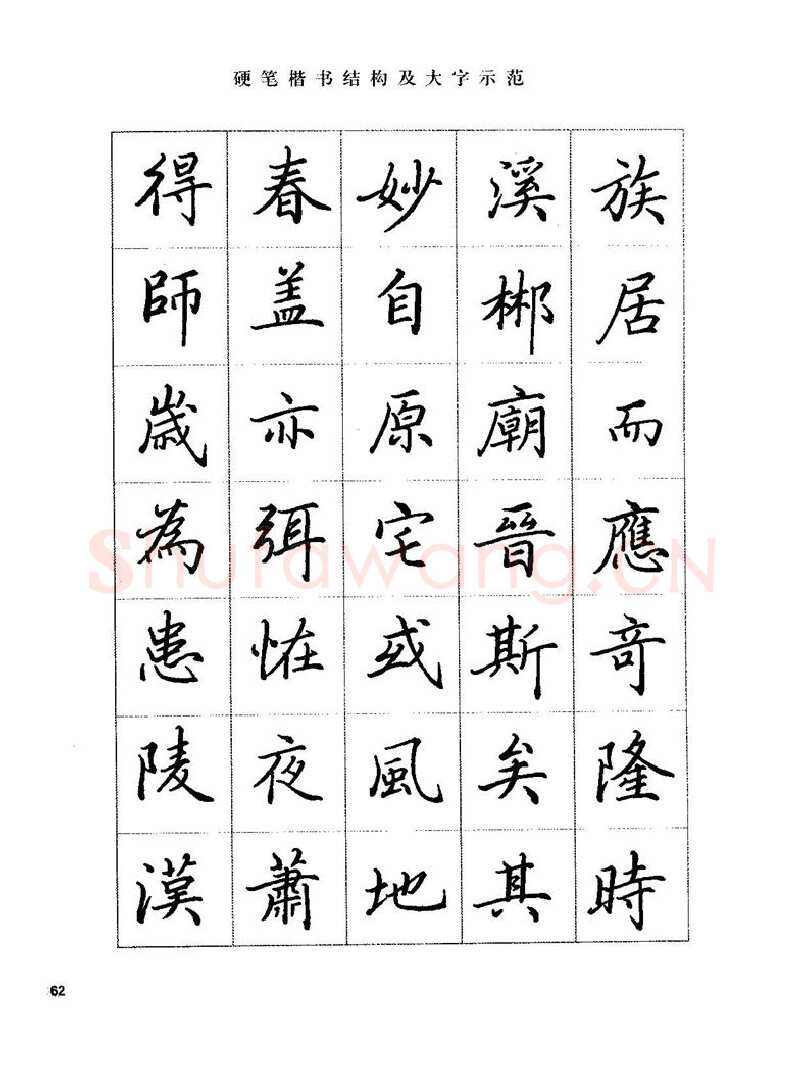 硬笔楷书结构及大字示范
得春妙溪族
師盖自郴居
歲亦原廟而
為弭宅晉應
患恠或斯奇
陵夜風矣隆
漢蕭地其時
Shufawang.CN
62